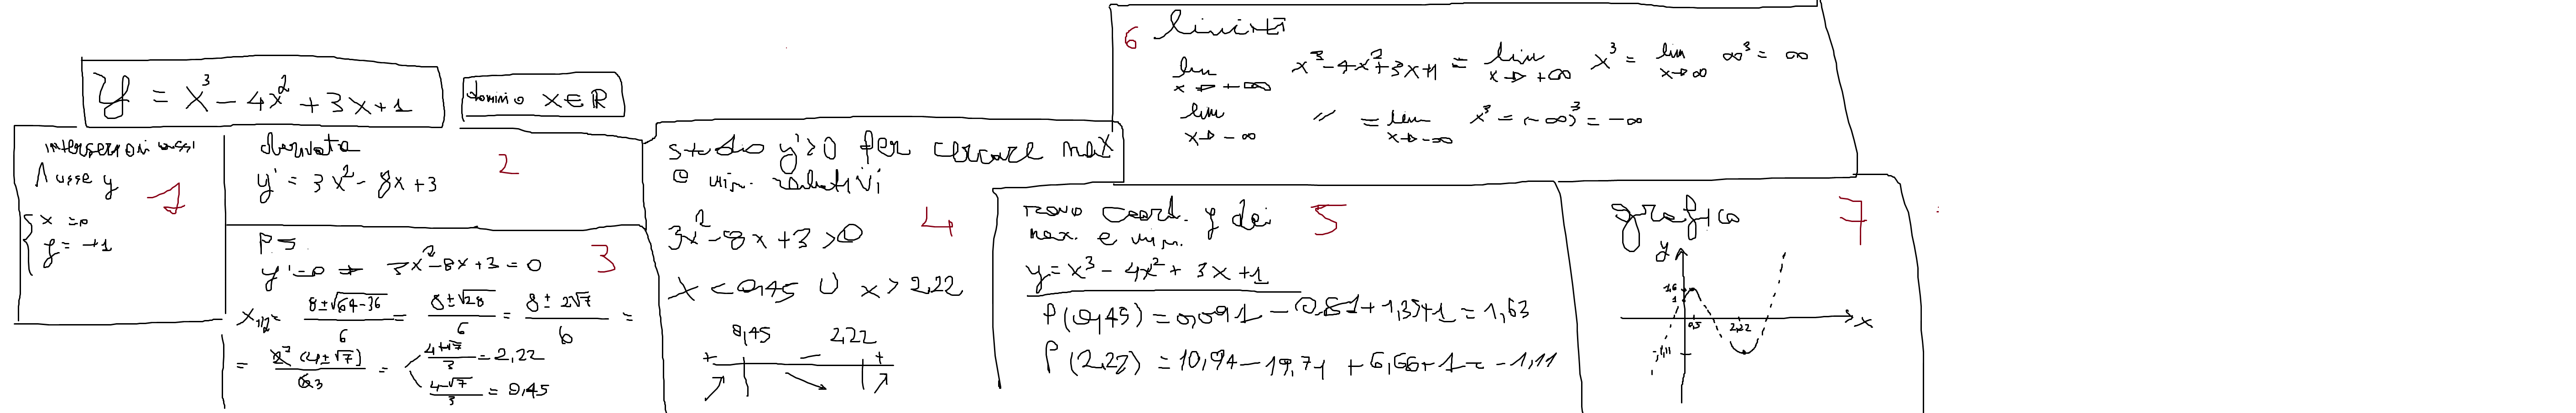 y = x³ - 4x² + 3x + 1
dominio x∈ℝ
intersezioni assi
1
∧ asse y
{ x = 0
y = +1
derivata
2
y' = 3x² - 8x + 3
P.S.
3
y' = 0 → 3x² - 8x + 3 = 0
x₁/₂ = (8 ± √(64-36))/6 = (8 ± √28)/6 = (8 ± 2√7)/6 =
= 2(4 ± √7)/6 3 =
(4+√7)/3 = 2,22
(4-√7)/3 = 0,45
studio y'>0 per cercare max
e min. relativi
4
3x² - 8x + 3 > 0
x < 0,45 ∪ x > 2,22
0,45 2,22
+ - +
trovo coord. y dei
max. e min.
5
y = x³ - 4x² + 3x + 1
f(0,45) = 0,091 - 0,81 + 1,35 + 1 = 1,63
f(2,22) = 10,94 - 19,71 + 6,66 + 1 = -1,11
6
limiti
lim x→+∞ x³ - 4x² + 3x + 1 = lim x→+∞ x³ = lim x→∞ ∞³ = ∞
lim x→-∞ // = lim x→-∞ x³ = (-∞)³ = -∞
grafico
7
y
1,6
1
0,5 2,22 x
-1,11